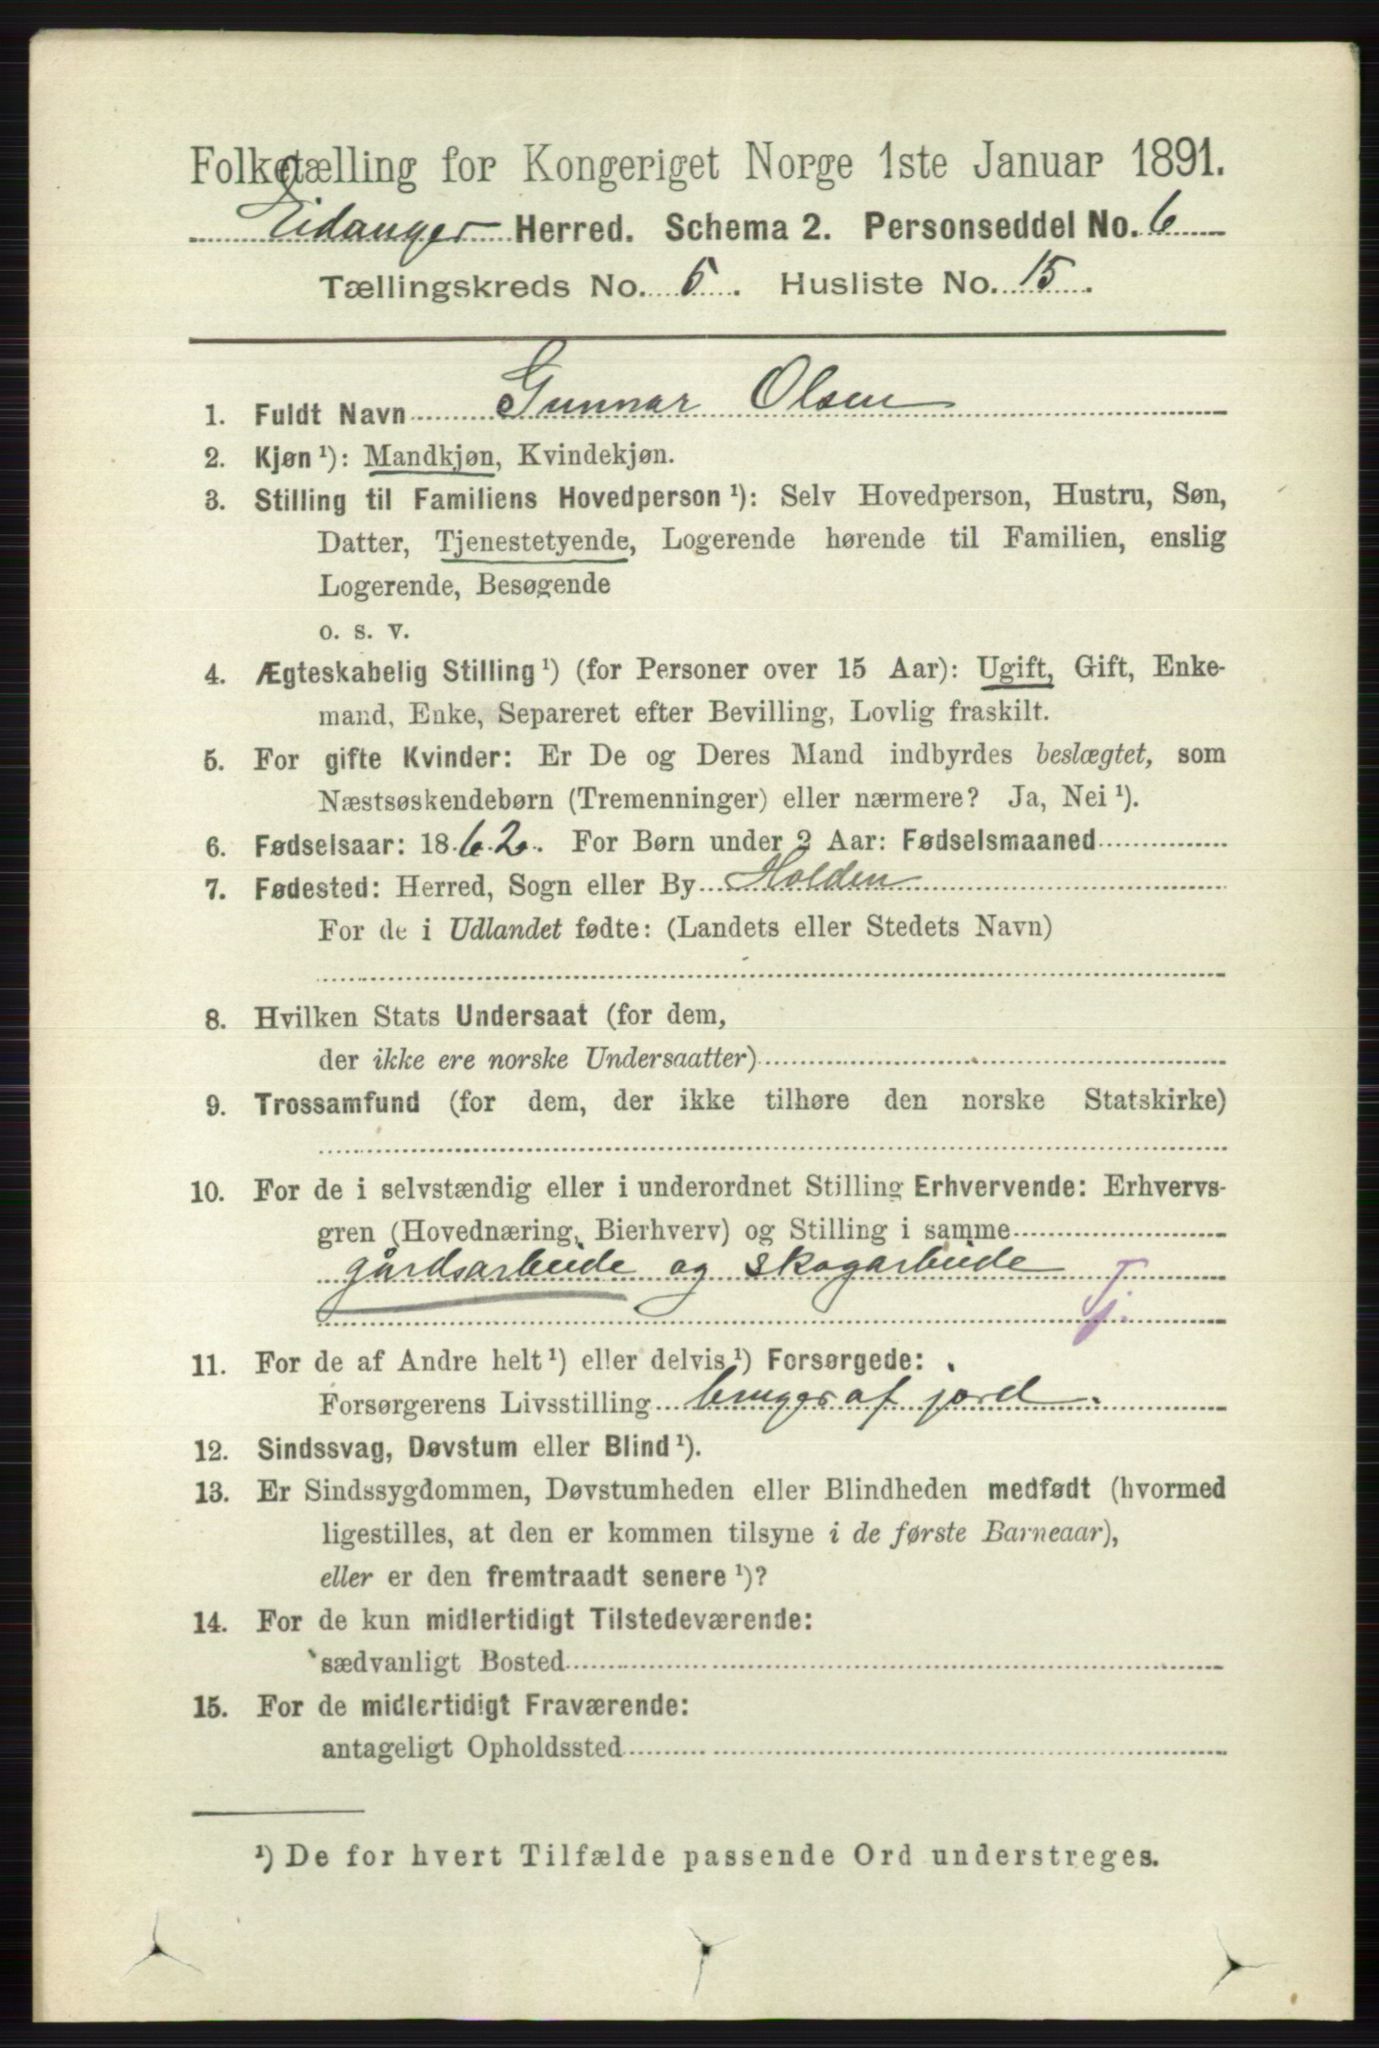 Folketælling for Kongeriget Norge 1ste Januar 1891.
Eidanger Herred. Schema 2. Personseddel No. 6
Tællingskreds No. 5. Husliste No. 15.
1. Fuldt Navn Gunnar Olsen
2. Kjøn¹): Mandkjøn, Kvindekjøn.
3. Stilling til Familiens Hovedperson¹): Selv Hovedperson, Hustru, Søn,
Datter, Tjenestetyende, Logerende hørende til Familien, enslig
Logerende, Besøgende
o. s. v.
4. Ægteskabelig Stilling¹) (for Personer over 15 Aar): Ugift, Gift, Enke-
mand, Enke, Separeret efter Bevilling, Lovlig fraskilt.
5. For gifte Kvinder: Er De og Deres Mand indbyrdes beslægtet, som
Næstsøskendebørn (Tremenninger) eller nærmere? Ja, Nei¹).
6. Fødselsaar: 1862. For Børn under 2 Aar: Fødselsmaaned
7. Fødested: Herred, Sogn eller By Holden
For de i Udlandet fødte: (Landets eller Stedets Navn)
8. Hvilken Stats Undersaat (for dem,
der ikke ere norske Undersaatter)
9. Trossamfund (for dem, der ikke tilhøre den norske Statskirke)
10. For de i selvstændig eller i underordnet Stilling Erhvervende: Erhvervs-
gren (Hovednæring, Bierhverv) og Stilling i samme
gårdsarbeide og skogarbeide
Tj.
11. For de af Andre helt¹) eller delvis¹) Forsørgede:
Forsørgerens Livsstilling bruger af jord.
12. Sindssvag, Døvstum eller Blind¹).
13. Er Sindssygdommen, Døvstumheden eller Blindheden medfødt (hvormed
ligestilles, at den er kommen tilsyne i de første Barneaar),
eller er den fremtraadt senere¹)?
14. For de kun midlertidigt Tilstedeværende:
sædvanligt Bosted
15. For de midlertidigt Fraværende:
antageligt Opholdssted
¹) De for hvert Tilfælde passende Ord understreges.